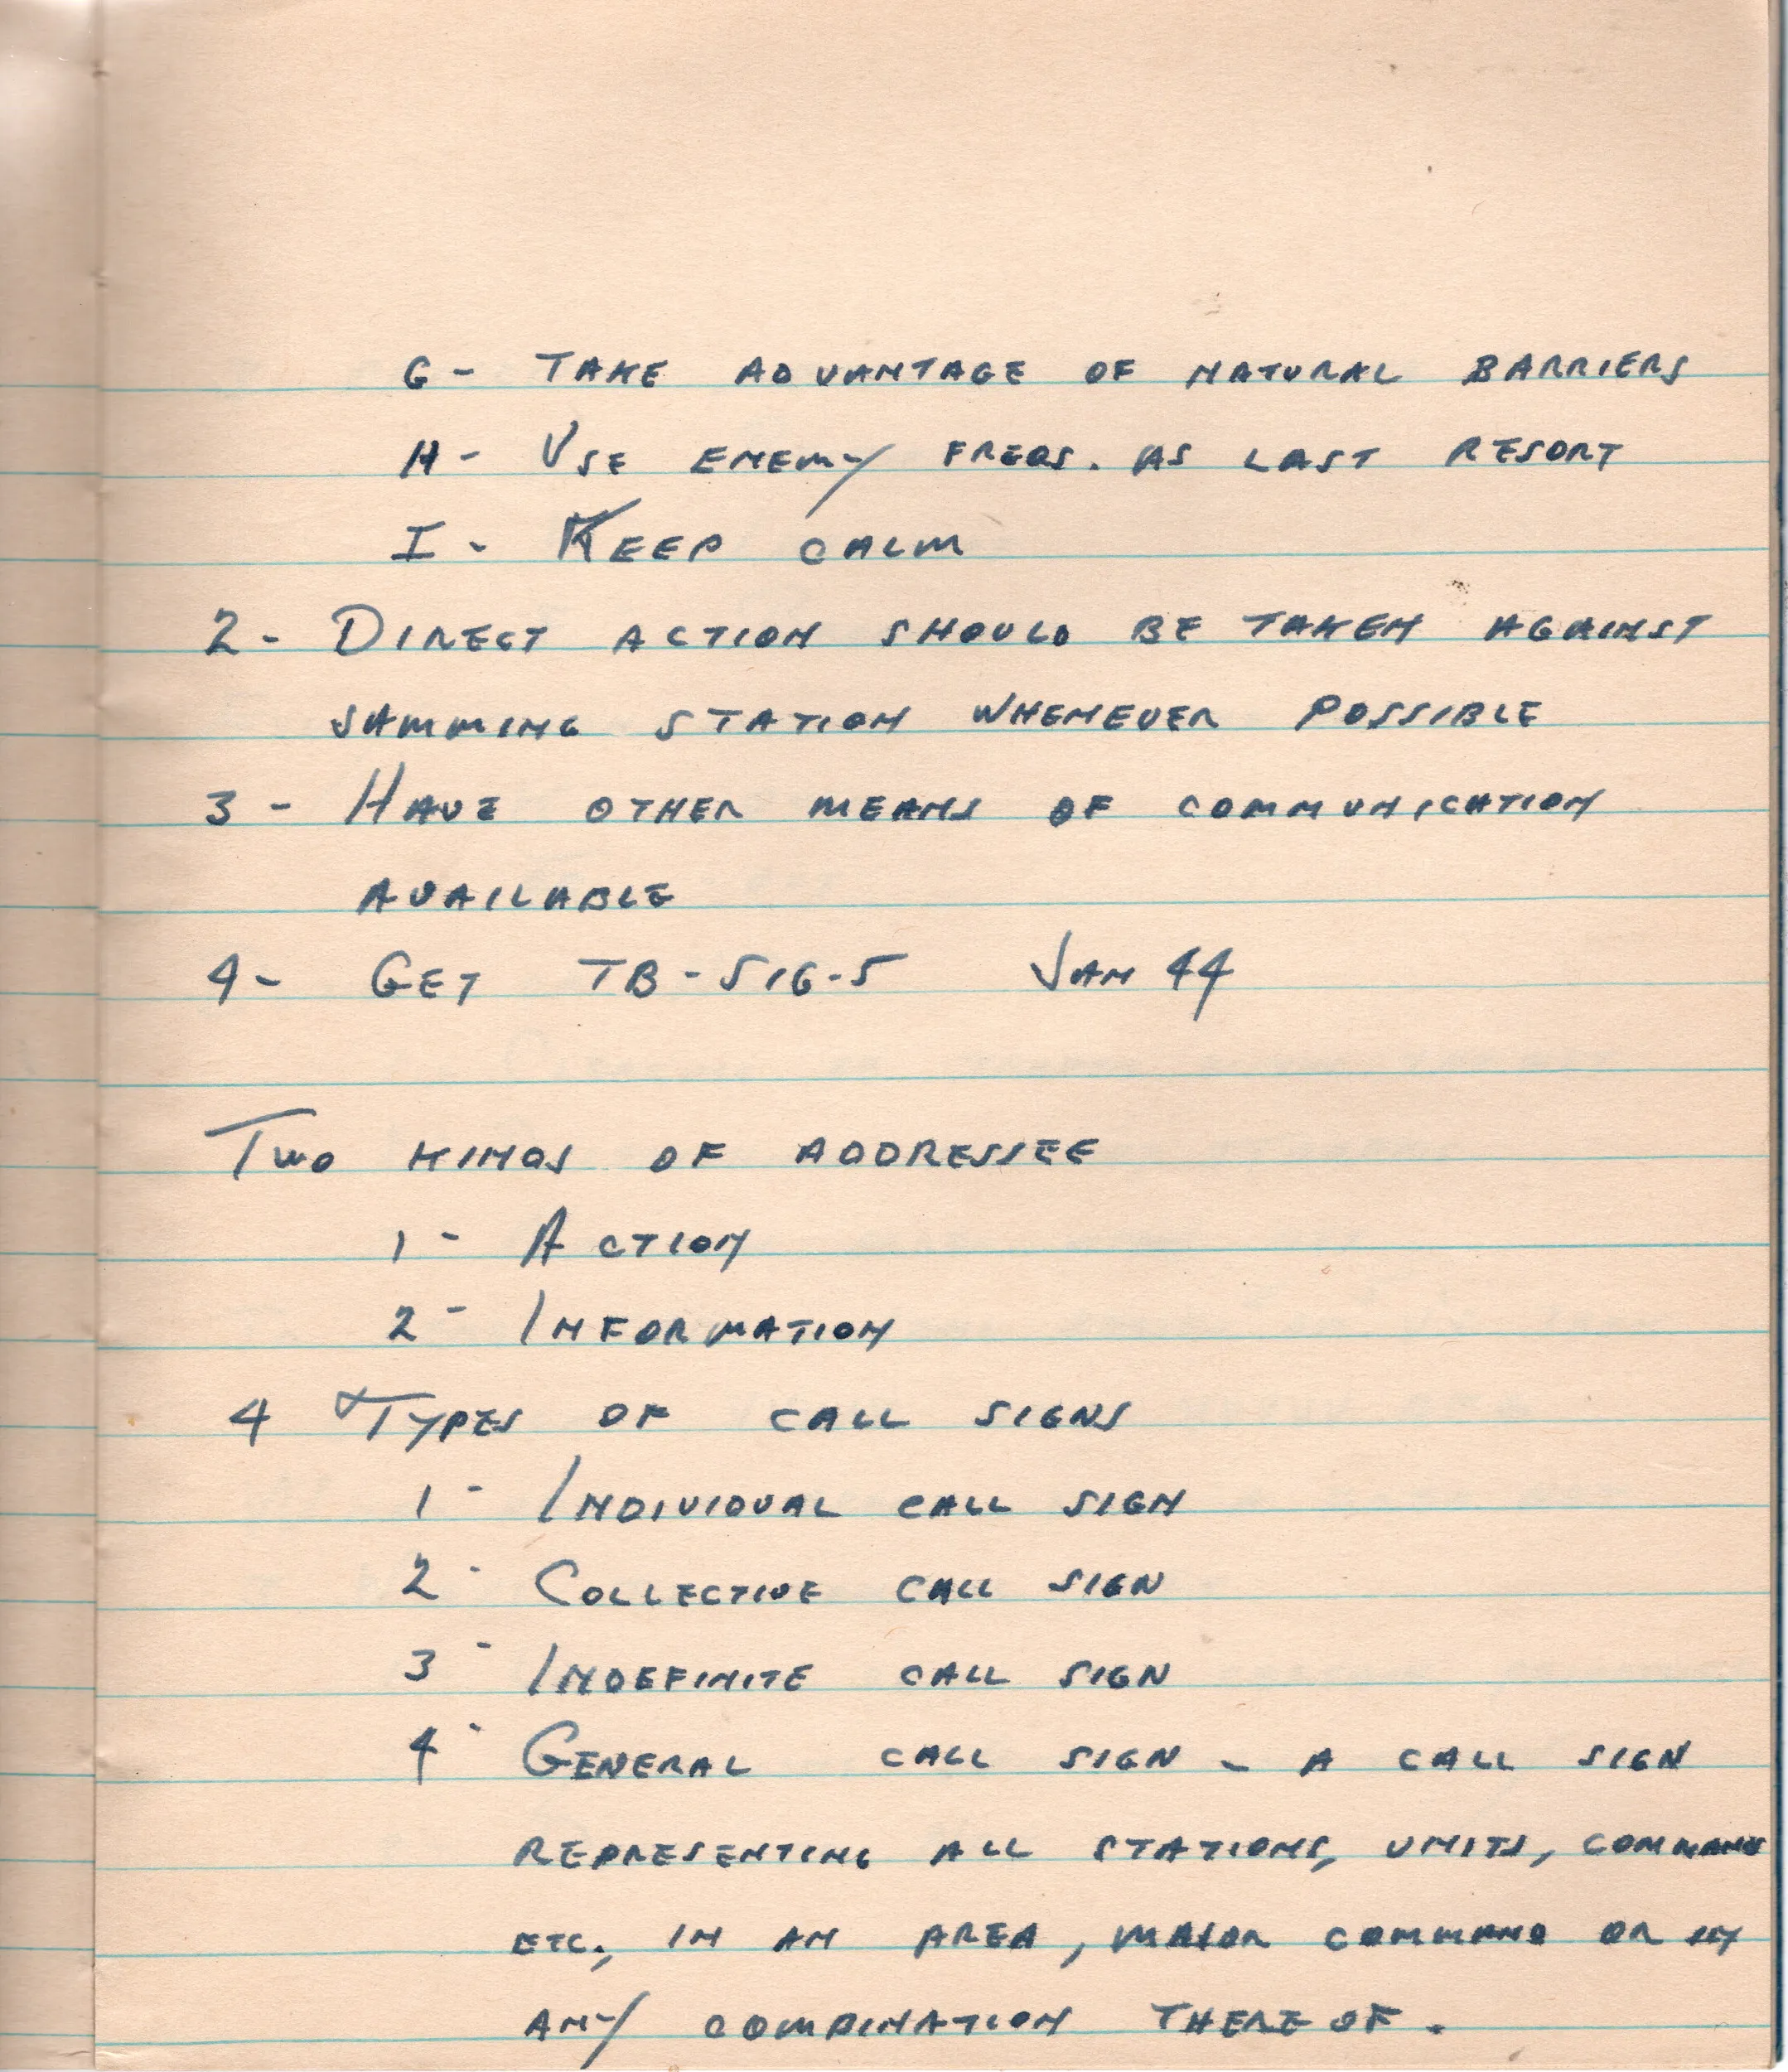 G- TAKE ADVANTAGE OF NATURAL BARRIERS
H- USE ENEMY FREQS. AS LAST RESORT
I- KEEP CALM
2- DIRECT ACTION SHOULD BE TAKEN AGAINST
JAMMING STATION WHENEVER POSSIBLE
3- HAVE OTHER MEANS OF COMMUNICATION
AVAILABLE
4- GET TB-SIG-5 JAN 44
TWO KINDS OF ADDRESSEE
1- ACTION
2- INFORMATION
4 TYPES OF CALL SIGNS
1- INDIVIDUAL CALL SIGN
2- COLLECTIVE CALL SIGN
3- INDEFINITE CALL SIGN
4- GENERAL CALL SIGN - A CALL SIGN
REPRESENTING ALL STATIONS, UNITS, COMMAND
ETC., IN AN AREA, MAJOR COMMAND OR
ANY COMBINATION THERE OF.